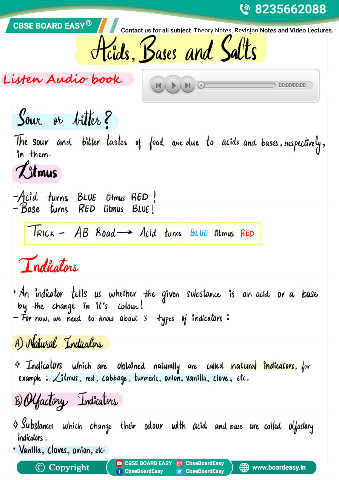 8235662088
CBSE BOARD EASY®
Contact us for all subject Theory Notes, Revision Notes and Video Lectures.
Acids, Bases and Salts
Listen Audio book
00:00/00:00
Sour or bitter?
The sour and bitter tastes of food are due to acids and bases, respectively,
in them.
Litmus
-Acid turns BLUE litmus RED!
- Base turns RED litmus BLUE!
TRICK - AB Road → Acid turns BLUE litmus RED
Indicators
• An indicator tells us whether the given substance is an acid or a base
by the change in it's colour!
- For now, we need to know about 3 types of indicators :
A) Natural Indicators
❖ Indicators which are obtained naturally are called natural indicators, for
example : Litmus, red, cabbage, turmeric, onion, vanilla, clove, etc.
B) Olfactory Indicators
❖ Substances which change their odour with acid and base are called olfactory
indicators.
• Vanilla, cloves, onion, etc-
© Copyright
CBSE BOARD EASY
CbseBoardEasy
CbseBoardEasy
CbseBoardEasy
www.boardeasy.in